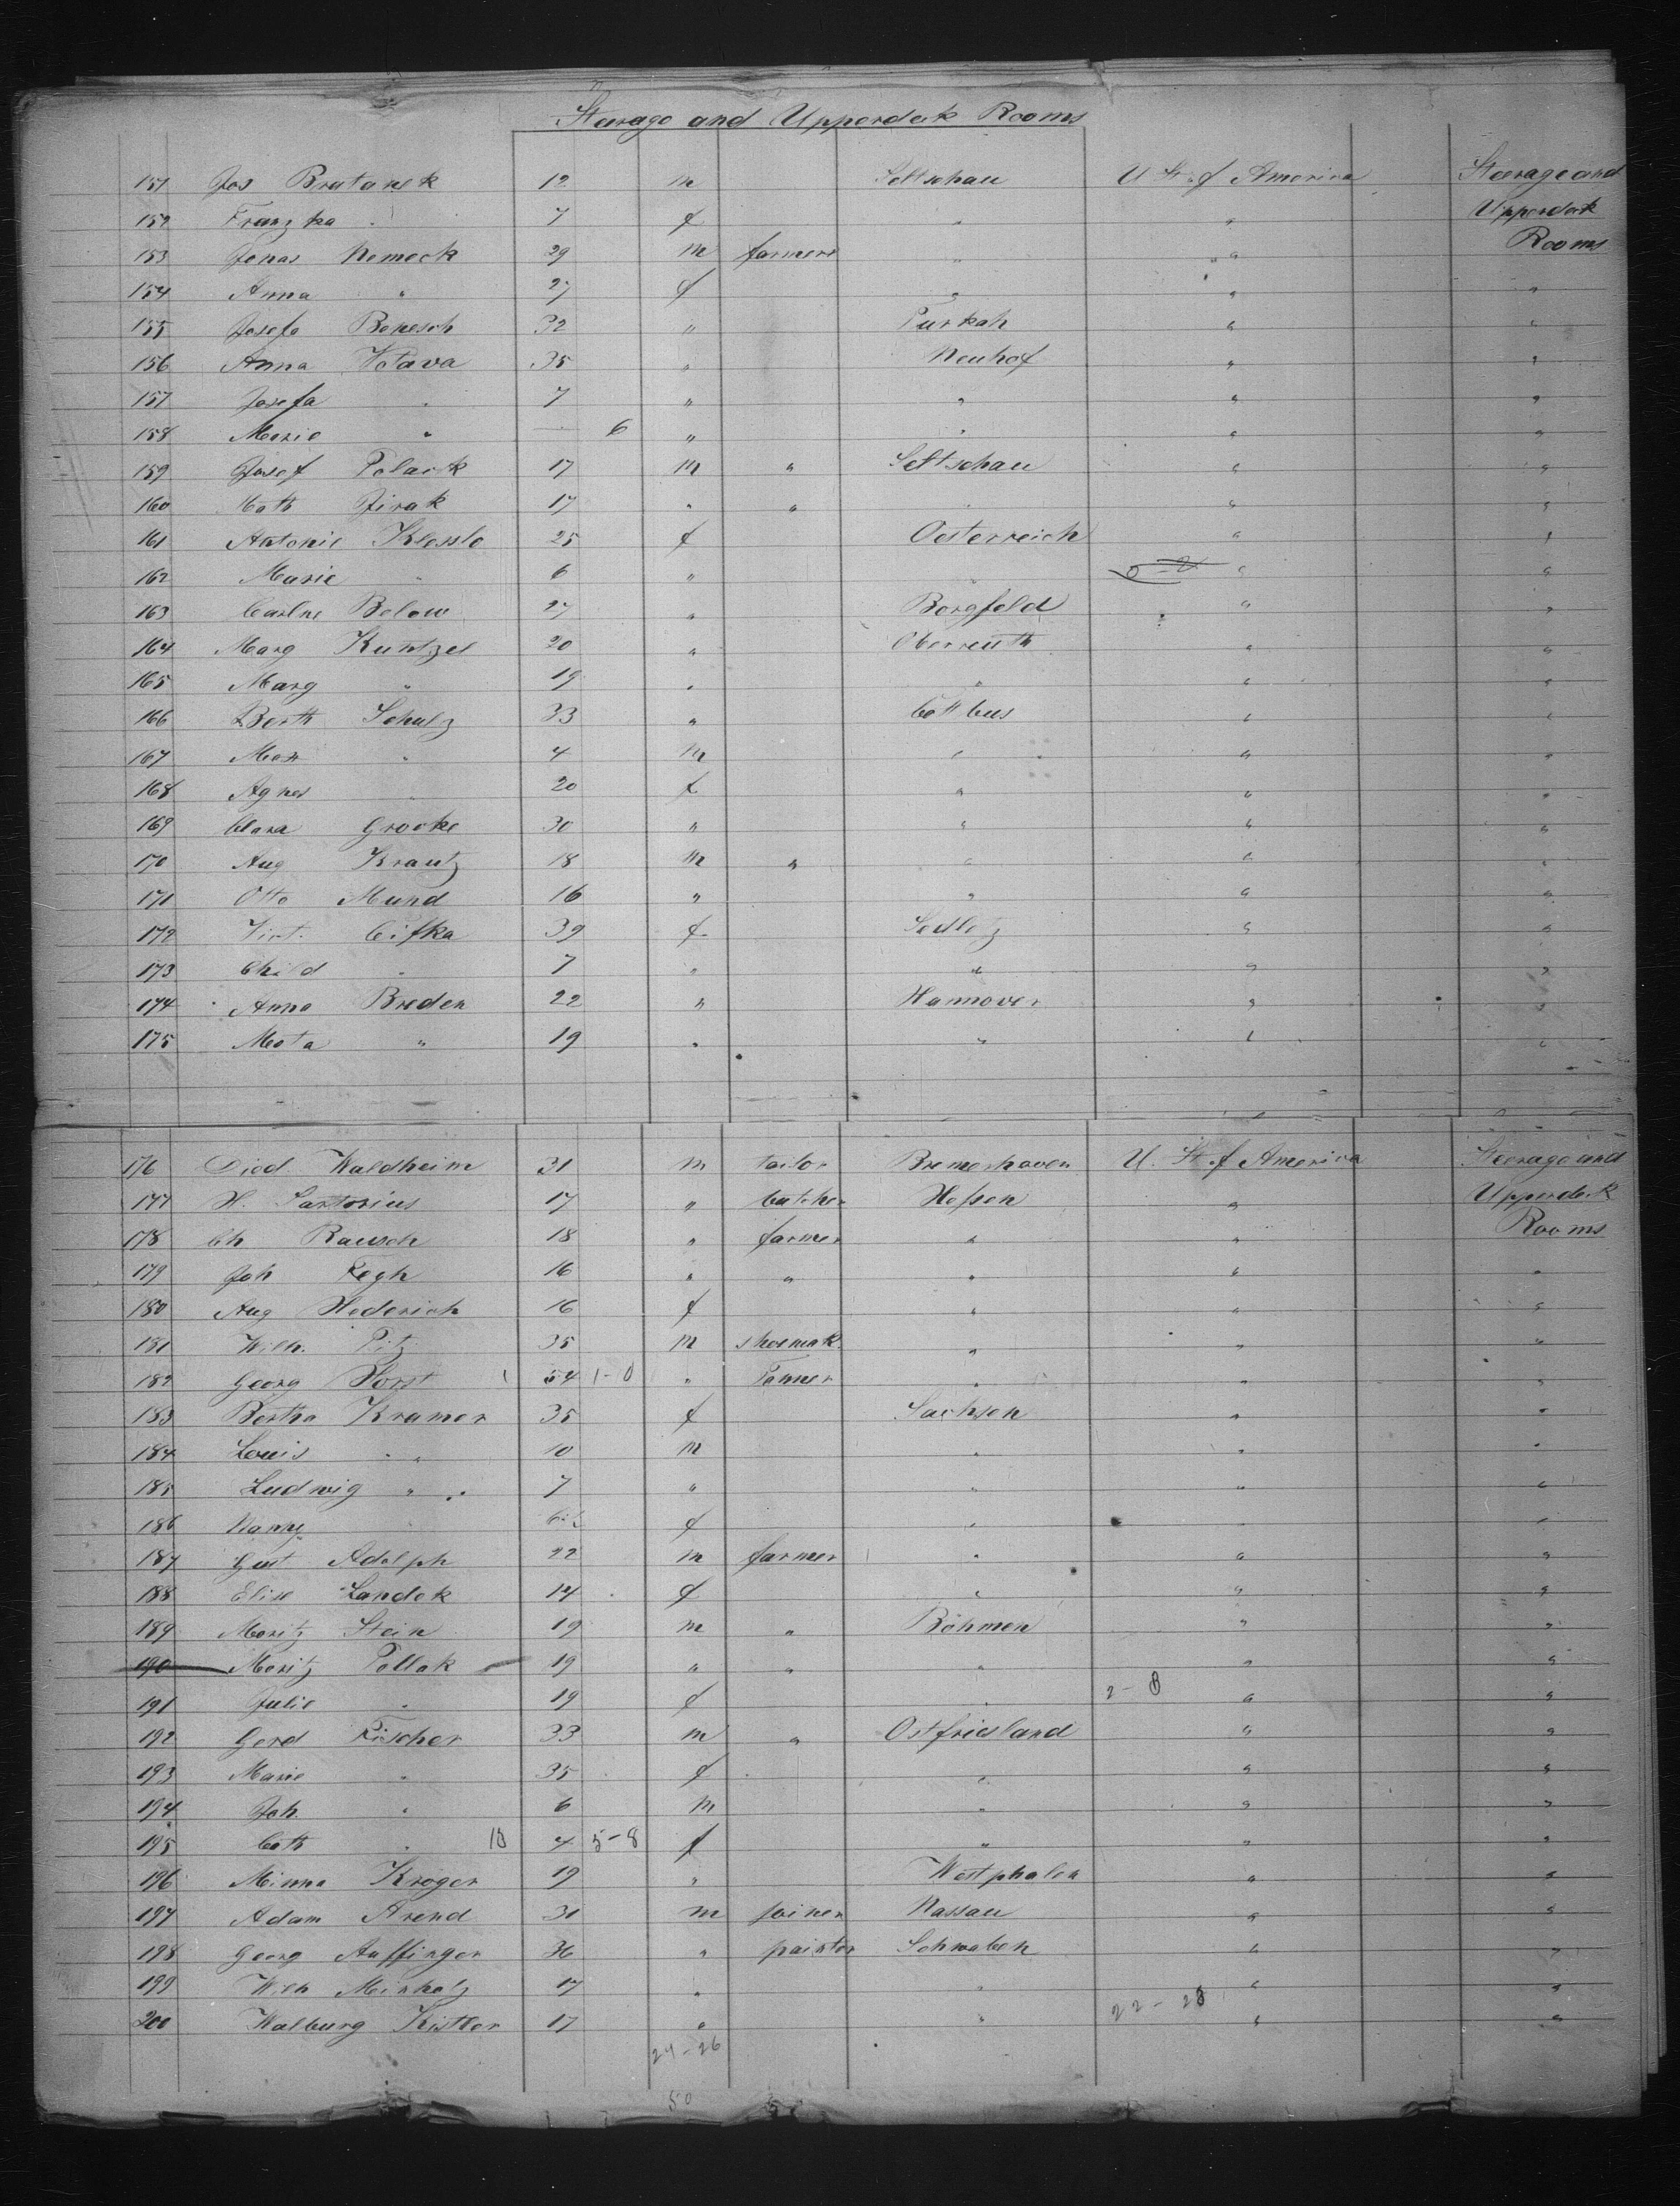 Steerage and Upperdeck Rooms
151 Jos Bratanek 12 m Seltschau U St. of America Steerage and
152 Franzka " 7 f " " Upperdeck
153 Jonas Nemeck 29 m farmer " " Rooms
154 Anna " 27 f " " "
155 Josefa Benesch 32 " Purkah " "
156 Anna Votava 35 " Neuhof " "
157 Josefa " 7 " " " "
158 Marie " — 6 " " " "
159 Josef Polack 17 m " Seltschau " "
160 Math Jirak 17 " " " " "
161 Antonie Klessle 25 f Oesterreich " "
162 Marie " 6 " " " "
163 Carlne Below 27 " Borgfeld " "
164 Marg Kuntzel 20 " Oberreuth " "
165 Marg " 19 " " " "
166 Berth Schulz 33 " Cottbus " "
167 Max " 4 m " " "
168 Agnes " 20 f " " "
169 Clara Grocke 30 " " " "
170 Aug Krautz 18 m " " " "
171 Otto Mund 16 " " " "
172 Vict. Cifka 39 f Sedletz " "
173 Child " 7 " " " "
174 Anna Breden 22 " Hannover " "
175 Meta " 19 " " " "
176 Died Waldheim 31 m tailor Bremerhaven U. St. of America Steerage and
177 H. Sartorius 17 " butcher Hessen " Upperdeck
178 Ch Rausch 18 " farmer " " Rooms
179 Joh Regh 16 " " " " "
180 Aug Hederich 16 f " " "
181 Wilh. Pitz 35 m shoemak. " " "
182 Georg Horst 1 54 1-0 " Tanner " " "
183 Bertha Kramer 35 f Sachsen " "
184 Louis " 10 m " " "
185 Ludwig " 7 " " " "
186 Nanny " f " " "
187 Gust Adolph 22 m farmer " " "
188 Elise Landek 14 f " " "
189 Moritz Stein 19 m " Böhmen " "
190 Moritz Pollak 19 " " " " "
191 Julie " 19 f " 2-8 " "
192 Gerd Fischer 33 m " Ostfriesland " "
193 Marie " 35 f " " "
194 Joh. " 6 m " " "
195 Cath " 15 4 5-8 f " " "
196 Minna Kroger 19 " Westphalen " "
197 Adam Arend 31 m joiner Nassau " "
198 Georg Auffinger 36 " painter Schwaben " "
199 Wilh Meinholz 17 " " " "
200 Walburg Kistler 17 " " 22-28 " "
24-26
50